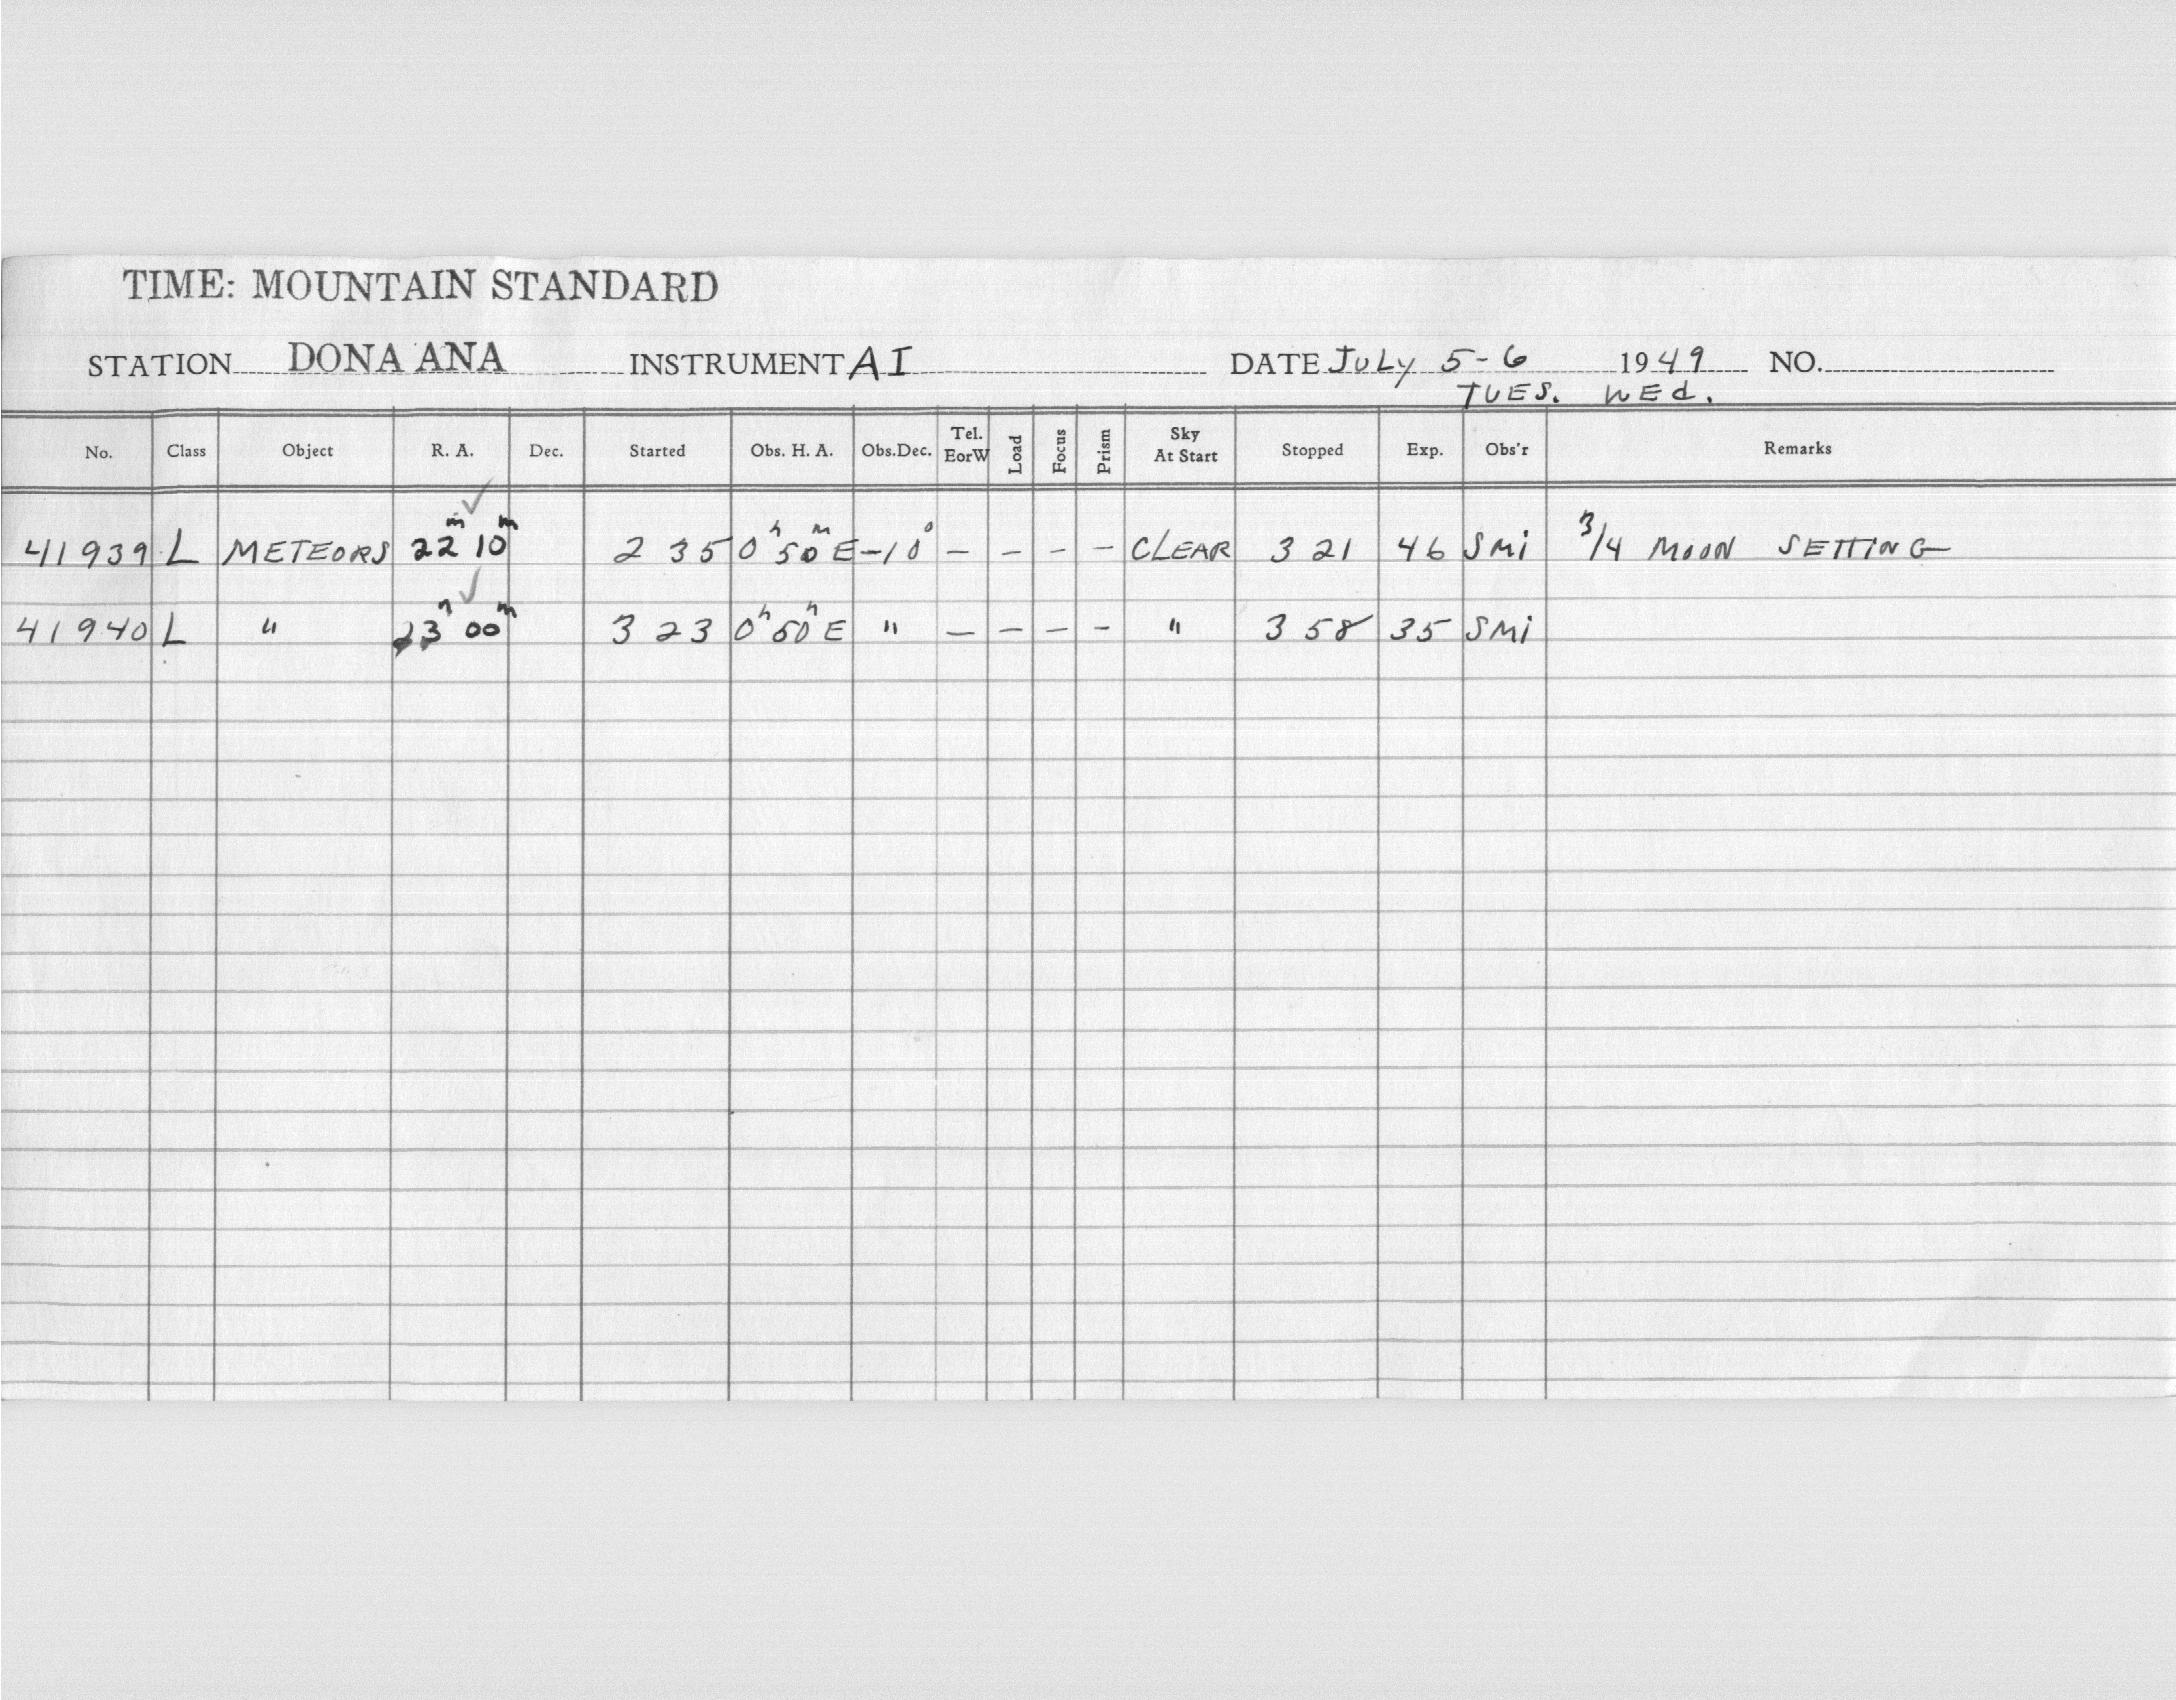 TIME: MOUNTAIN STANDARD
STATION DONA ANA INSTRUMENT AI DATE JULY 5-6 1949 NO.
TUES. WEd.
No. Class Object R. A. Dec. Started Obs. H. A. Obs.Dec. Tel. EorW Load Focus Prism Sky At Start Stopped Exp. Obs'r Remarks
41939 L METEORS 22m 10m ✓ 2 35 0h 50m E -10° — — — — CLEAR 3 21 46 SMi 3/4 MOON SETTING
41940 L " 23h 00m ✓ 3 23 0h 50h E " — — — — " 3 58 35 SMi